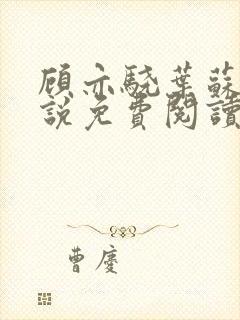 顾亦驍葉蘇
說免費閱讀
曹慶